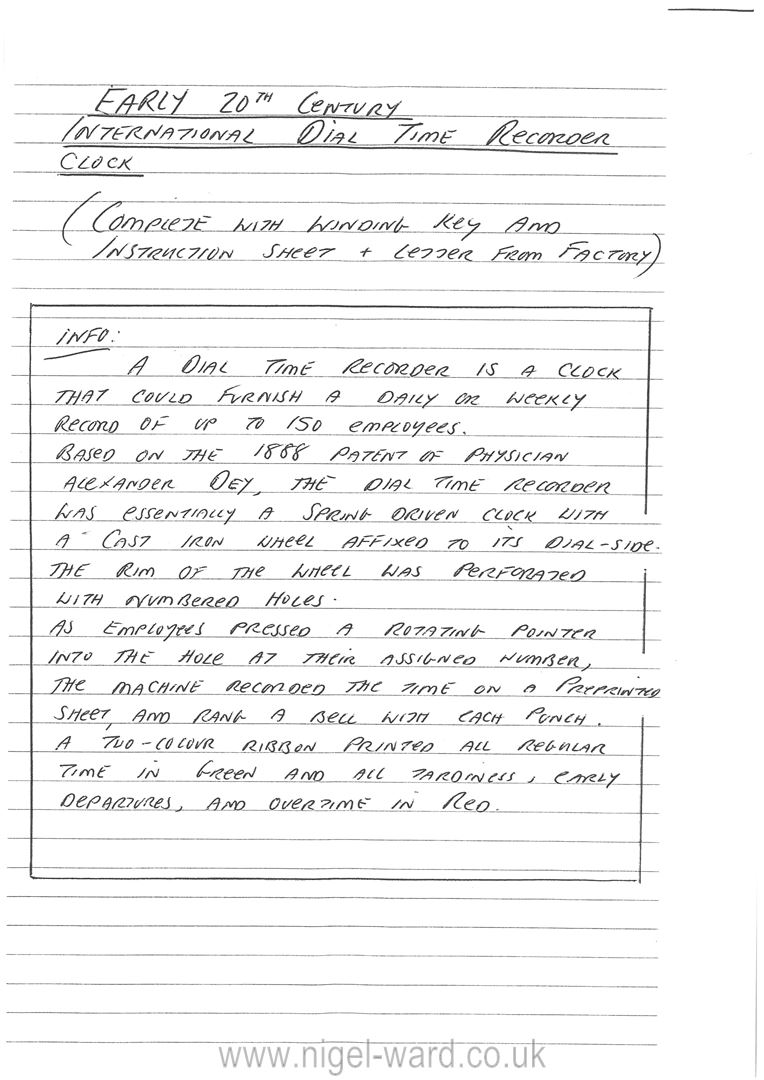 EARLY 20TH CENTURY
INTERNATIONAL DIAL TIME RECORDER
CLOCK
(COMPLETE WITH WINDING KEY AND
INSTRUCTION SHEET + LETTER FROM FACTORY)
INFO:
A DIAL TIME RECORDER IS A CLOCK
THAT COULD FURNISH A DAILY OR WEEKLY
RECORD OF UP TO 150 EMPLOYEES.
BASED ON THE 1888 PATENT OF PHYSICIAN
ALEXANDER DEY, THE DIAL TIME RECORDER
WAS ESSENTIALLY A SPRING DRIVEN CLOCK WITH
A CAST IRON WHEEL AFFIXED TO ITS DIAL-SIDE.
THE RIM OF THE WHEEL WAS PERFORATED
WITH NUMBERED HOLES.
AS EMPLOYEES PRESSED A ROTATING POINTER
INTO THE HOLE AT THEIR ASSIGNED NUMBER,
THE MACHINE RECORDED THE TIME ON A PREPRINTED
SHEET, AND RANG A BELL WITH EACH PUNCH.
A TWO-COLOUR RIBBON PRINTED ALL REGULAR
TIME IN GREEN AND ALL TARDINESS, EARLY
DEPARTURES, AND OVERTIME IN RED.
www.nigel-ward.co.uk